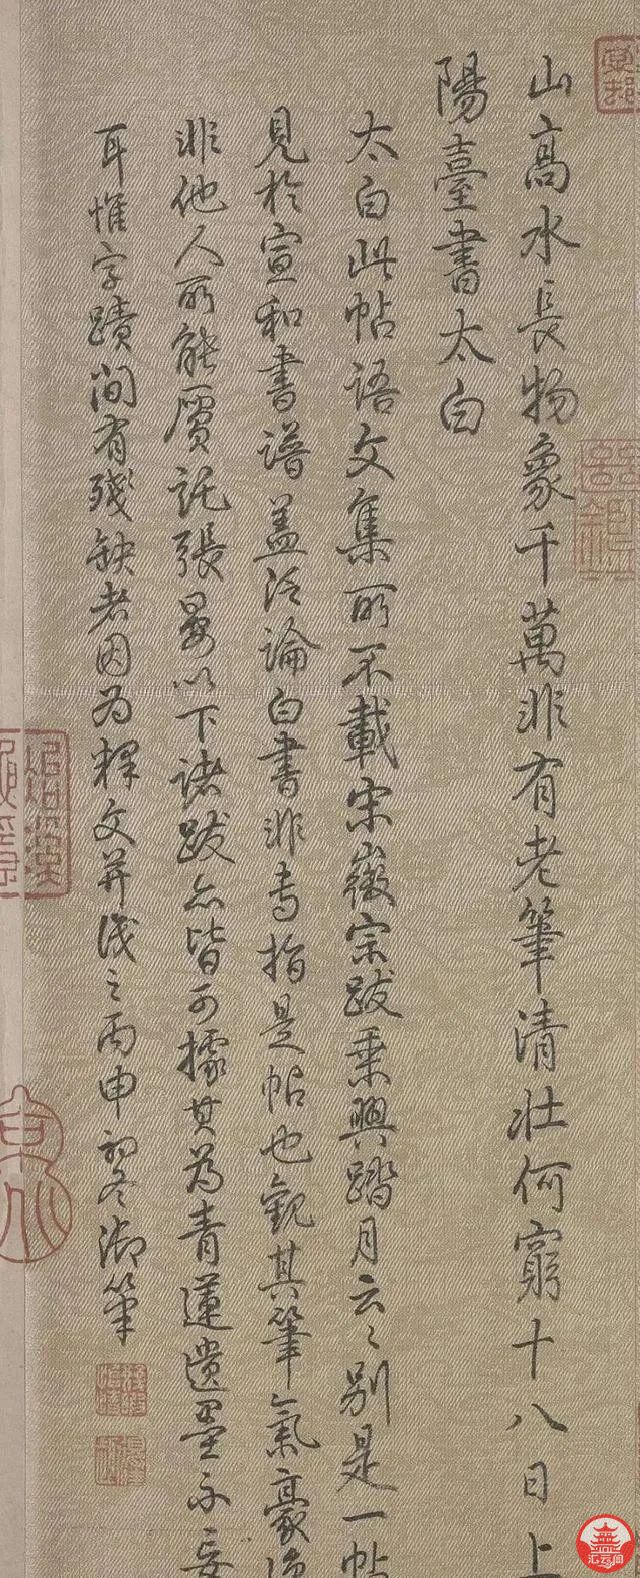 山高水長物象千萬非有老筆清壯何窮十八日上
陽臺書太白
太白此帖語文集所不載宋徽宗跋乗興踏月云〻別是一帖
見於宣和書譜盖泛論白書非專指是帖也觀其筆氣豪
非他人所能贋託張晏以下諸跋亦皆可據其為青蓮遺墨不妄
耳惟字蹟間有殘缺者因為釋文并識之丙申初冬御筆
汇云阁